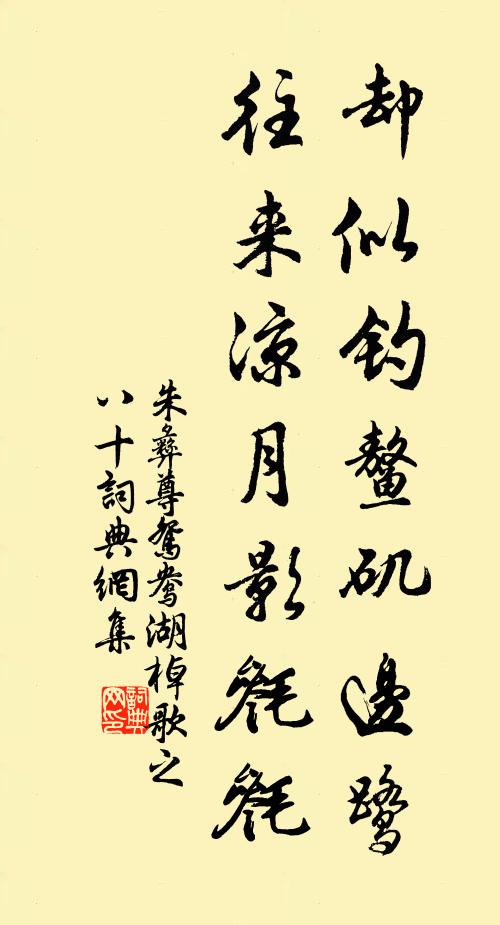 却似钓鳌矶邊鹭
往来凉月影毿毿
朱彝尊鴛鴦湖棹歌之
八十詞典網集
詞典
网印